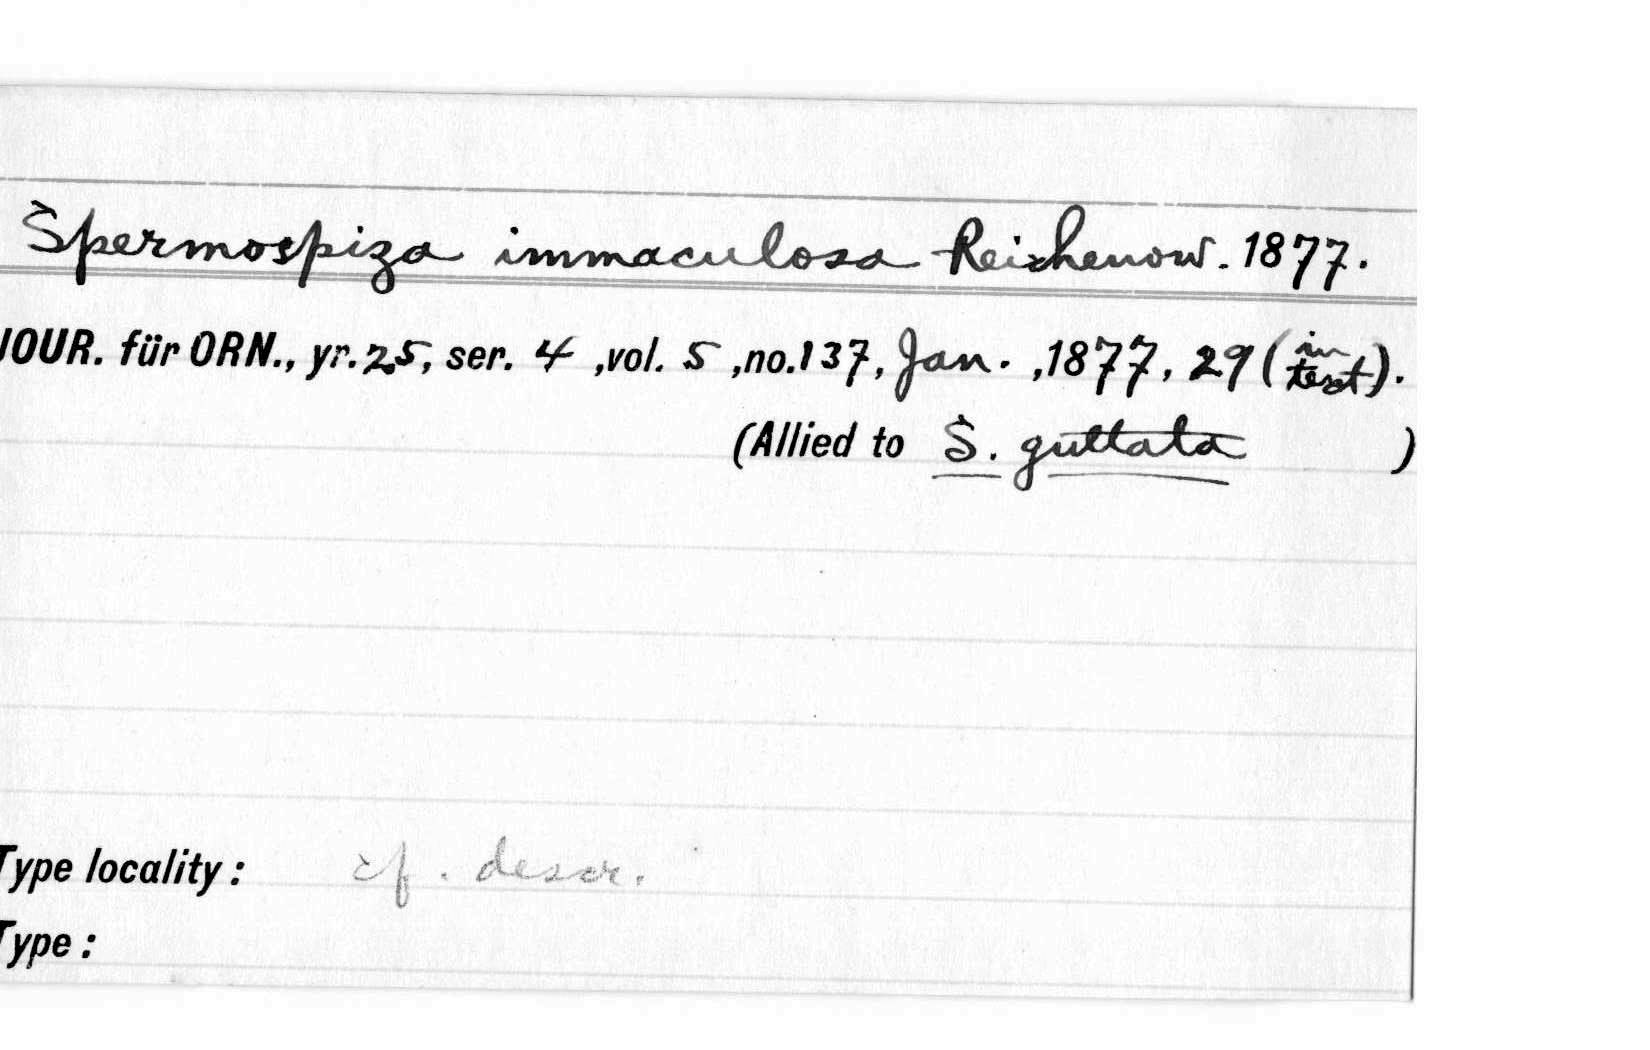 Spermospiza immaculosa Reichenow. 1877.
JOUR. für ORN., yr. 25, ser. 4 ,vol. 5 ,no.137, Jan. ,1877, 29 (in text).
(Allied to S. guttata )
Type locality: cf. descr.
Type: